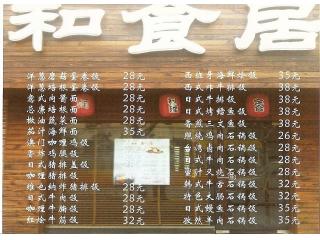 和食居
洋葱蘑菇蛋卷饭 28元
洋葱培根蛋卷饭 28元
意式肉酱面 28元
忌廉培根面 28元
椒油蔬菜面 28元
茄汁海鲜面 35元
澳门咖喱鸡饭 28元
蜜汁鸡腿饭 28元
日式猪排盖饭 28元
咖喱猪排饭 28元
维也纳炸猪排饭 28元
日式牛肉饭 28元
咖喱牛腩饭 28元
红烩牛筋饭 32元
西班牙海鲜炒饭 35元
日式咖喱蟹饭 38元
日式牛扒饭 38元
日式烤鳗鱼饭 38元
香煎三文鱼饭 38元
照烧鸡肉石锅饭 26元
台湾卤肉石锅饭 28元
日式牛肉石锅饭 28元
蜜汁叉烧石锅饭 28元
韩式牛舌石锅饭 32元
特色尤肠石锅饭 32元
日式鳗鱼石锅饭 35元
孜然羊肉石锅饭 35元